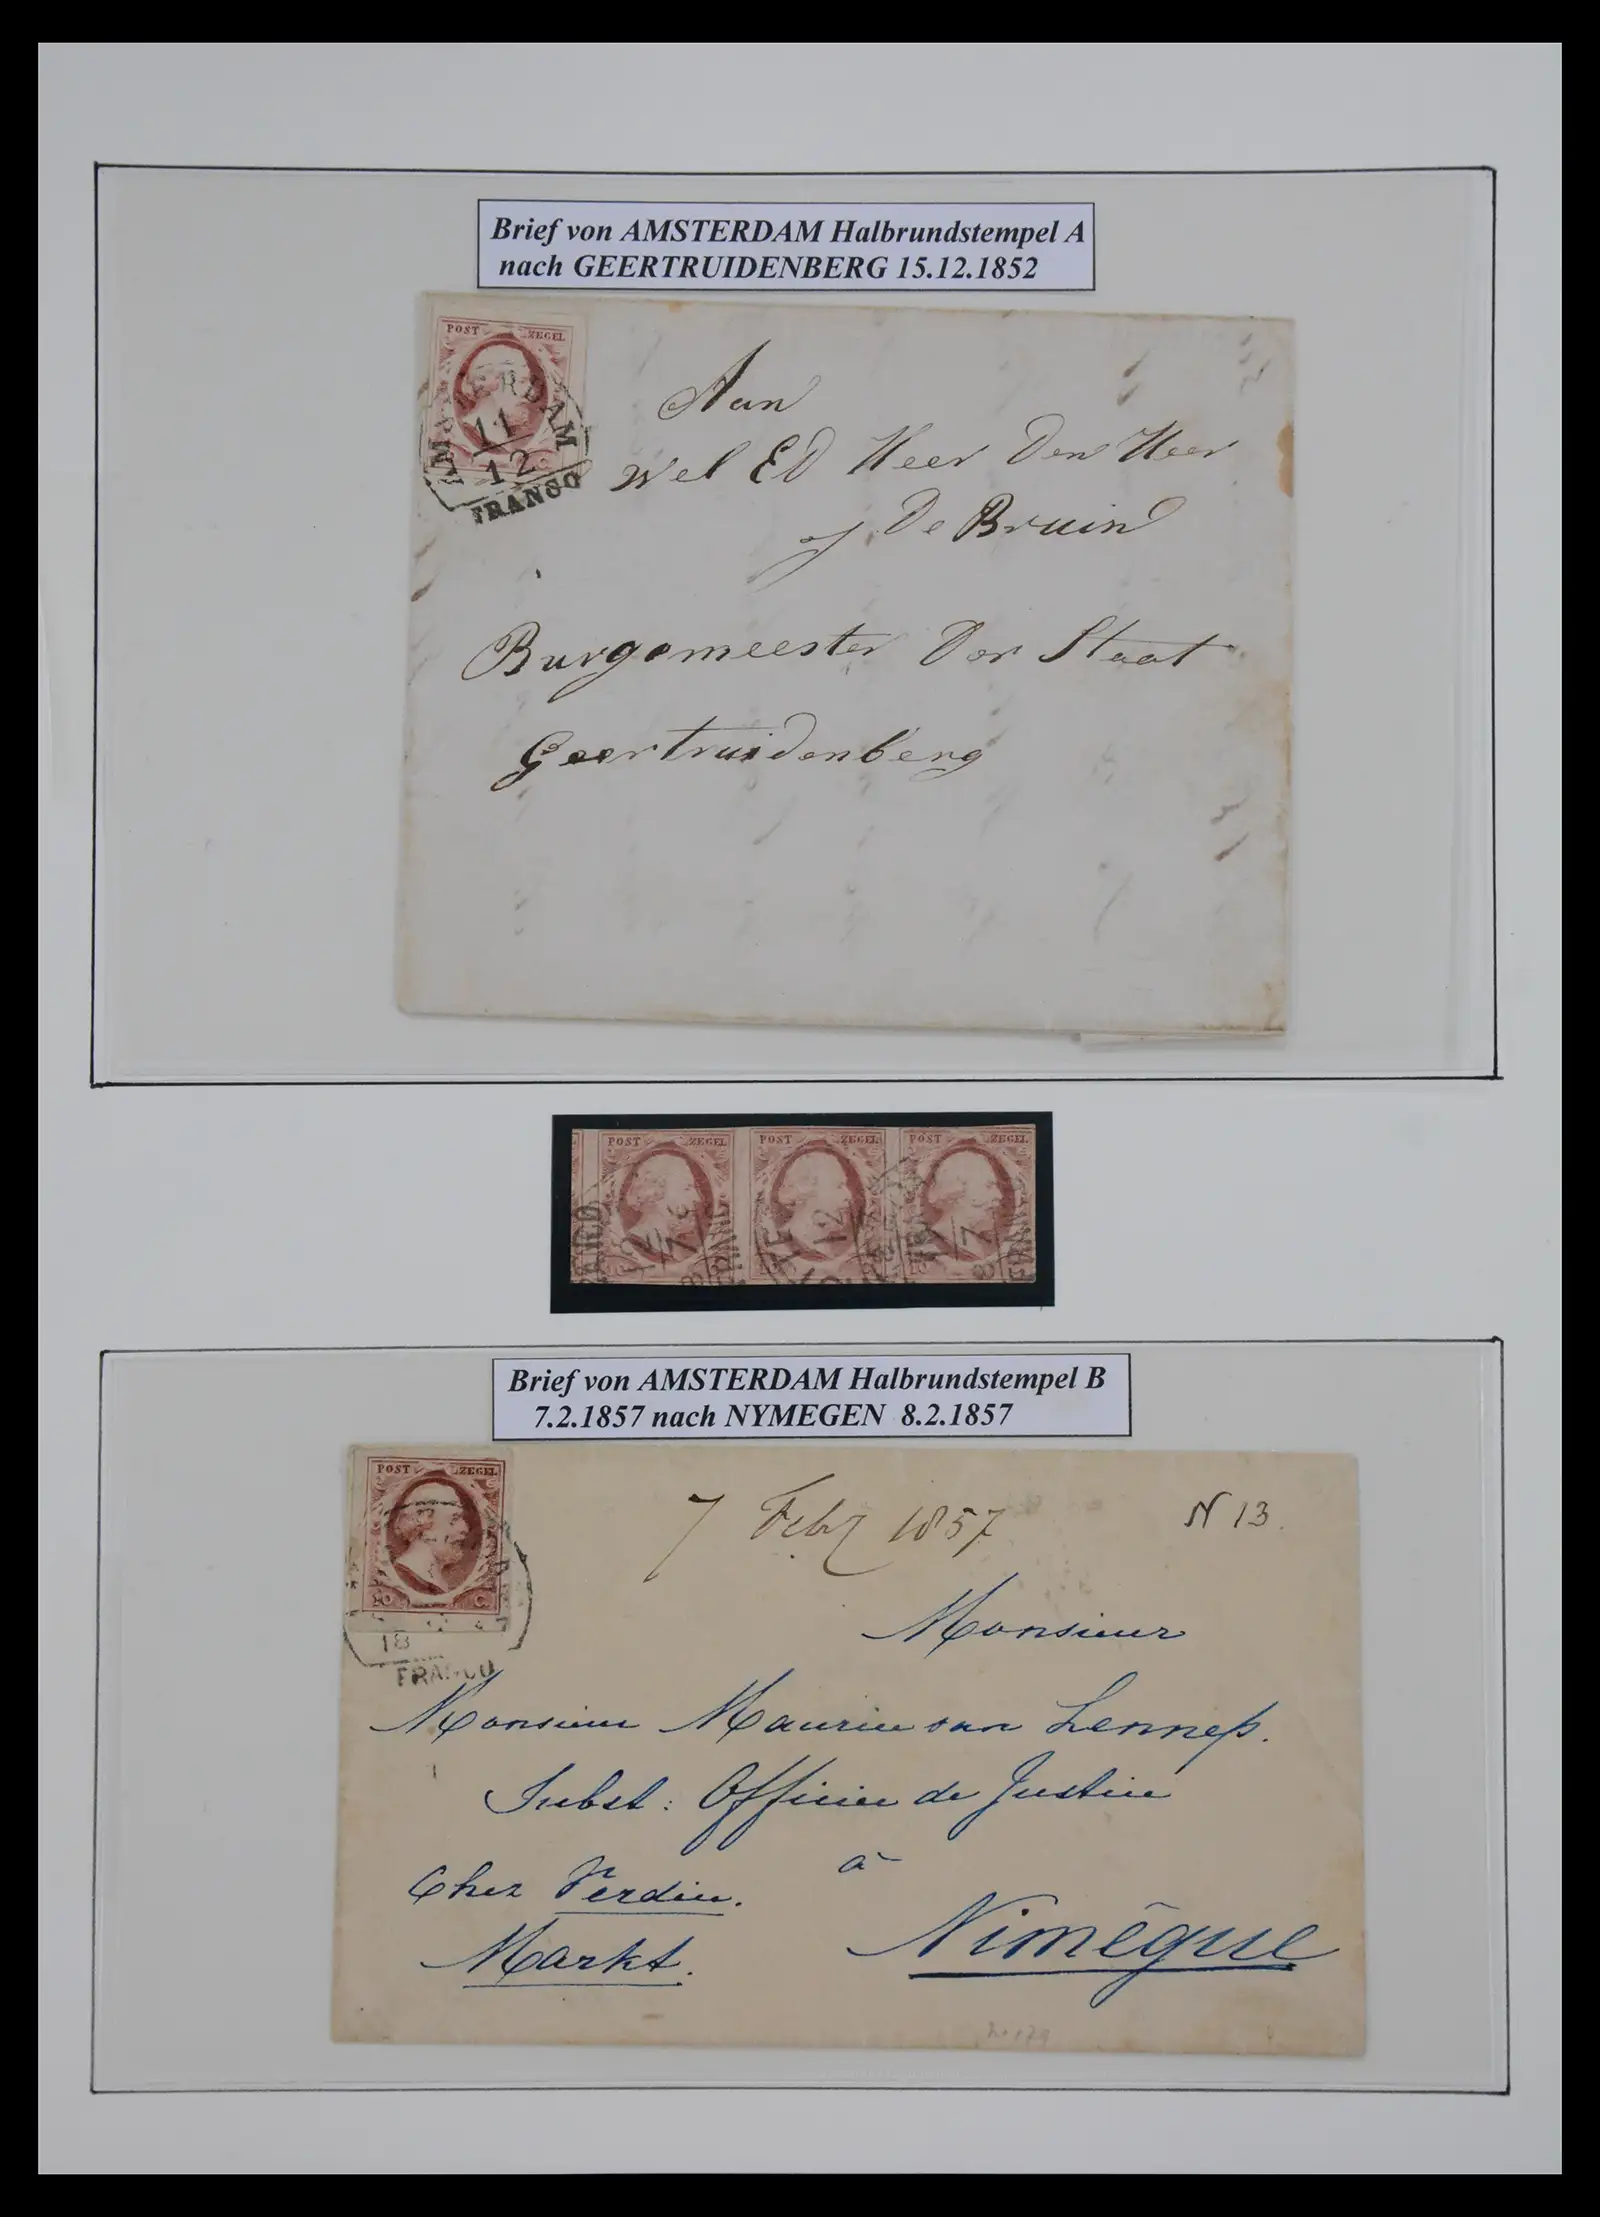 Brief von AMSTERDAM Halbrundstempel A
nach GEERTRUIDENBERG 15.12.1852
POST ZEGEL
AMSTERDAM
11
12
FRANCO
Aan
Wel Ed Heer Den Heer
J De Bruin
Burgemeester Der Staat
Geertruidenberg
POST ZEGEL POST ZEGEL POST ZEGEL
12
Brief von AMSTERDAM Halbrundstempel B
7.2.1857 nach NYMEGEN 8.2.1857
POST ZEGEL
10 C.
18
FRANCO
7 Feby 1857
N 13.
Monsieur
Monsieur Maurice van Lennep.
Subst: Officier de Justice
Chez Verdier.
à
Markt.
Nimêgue